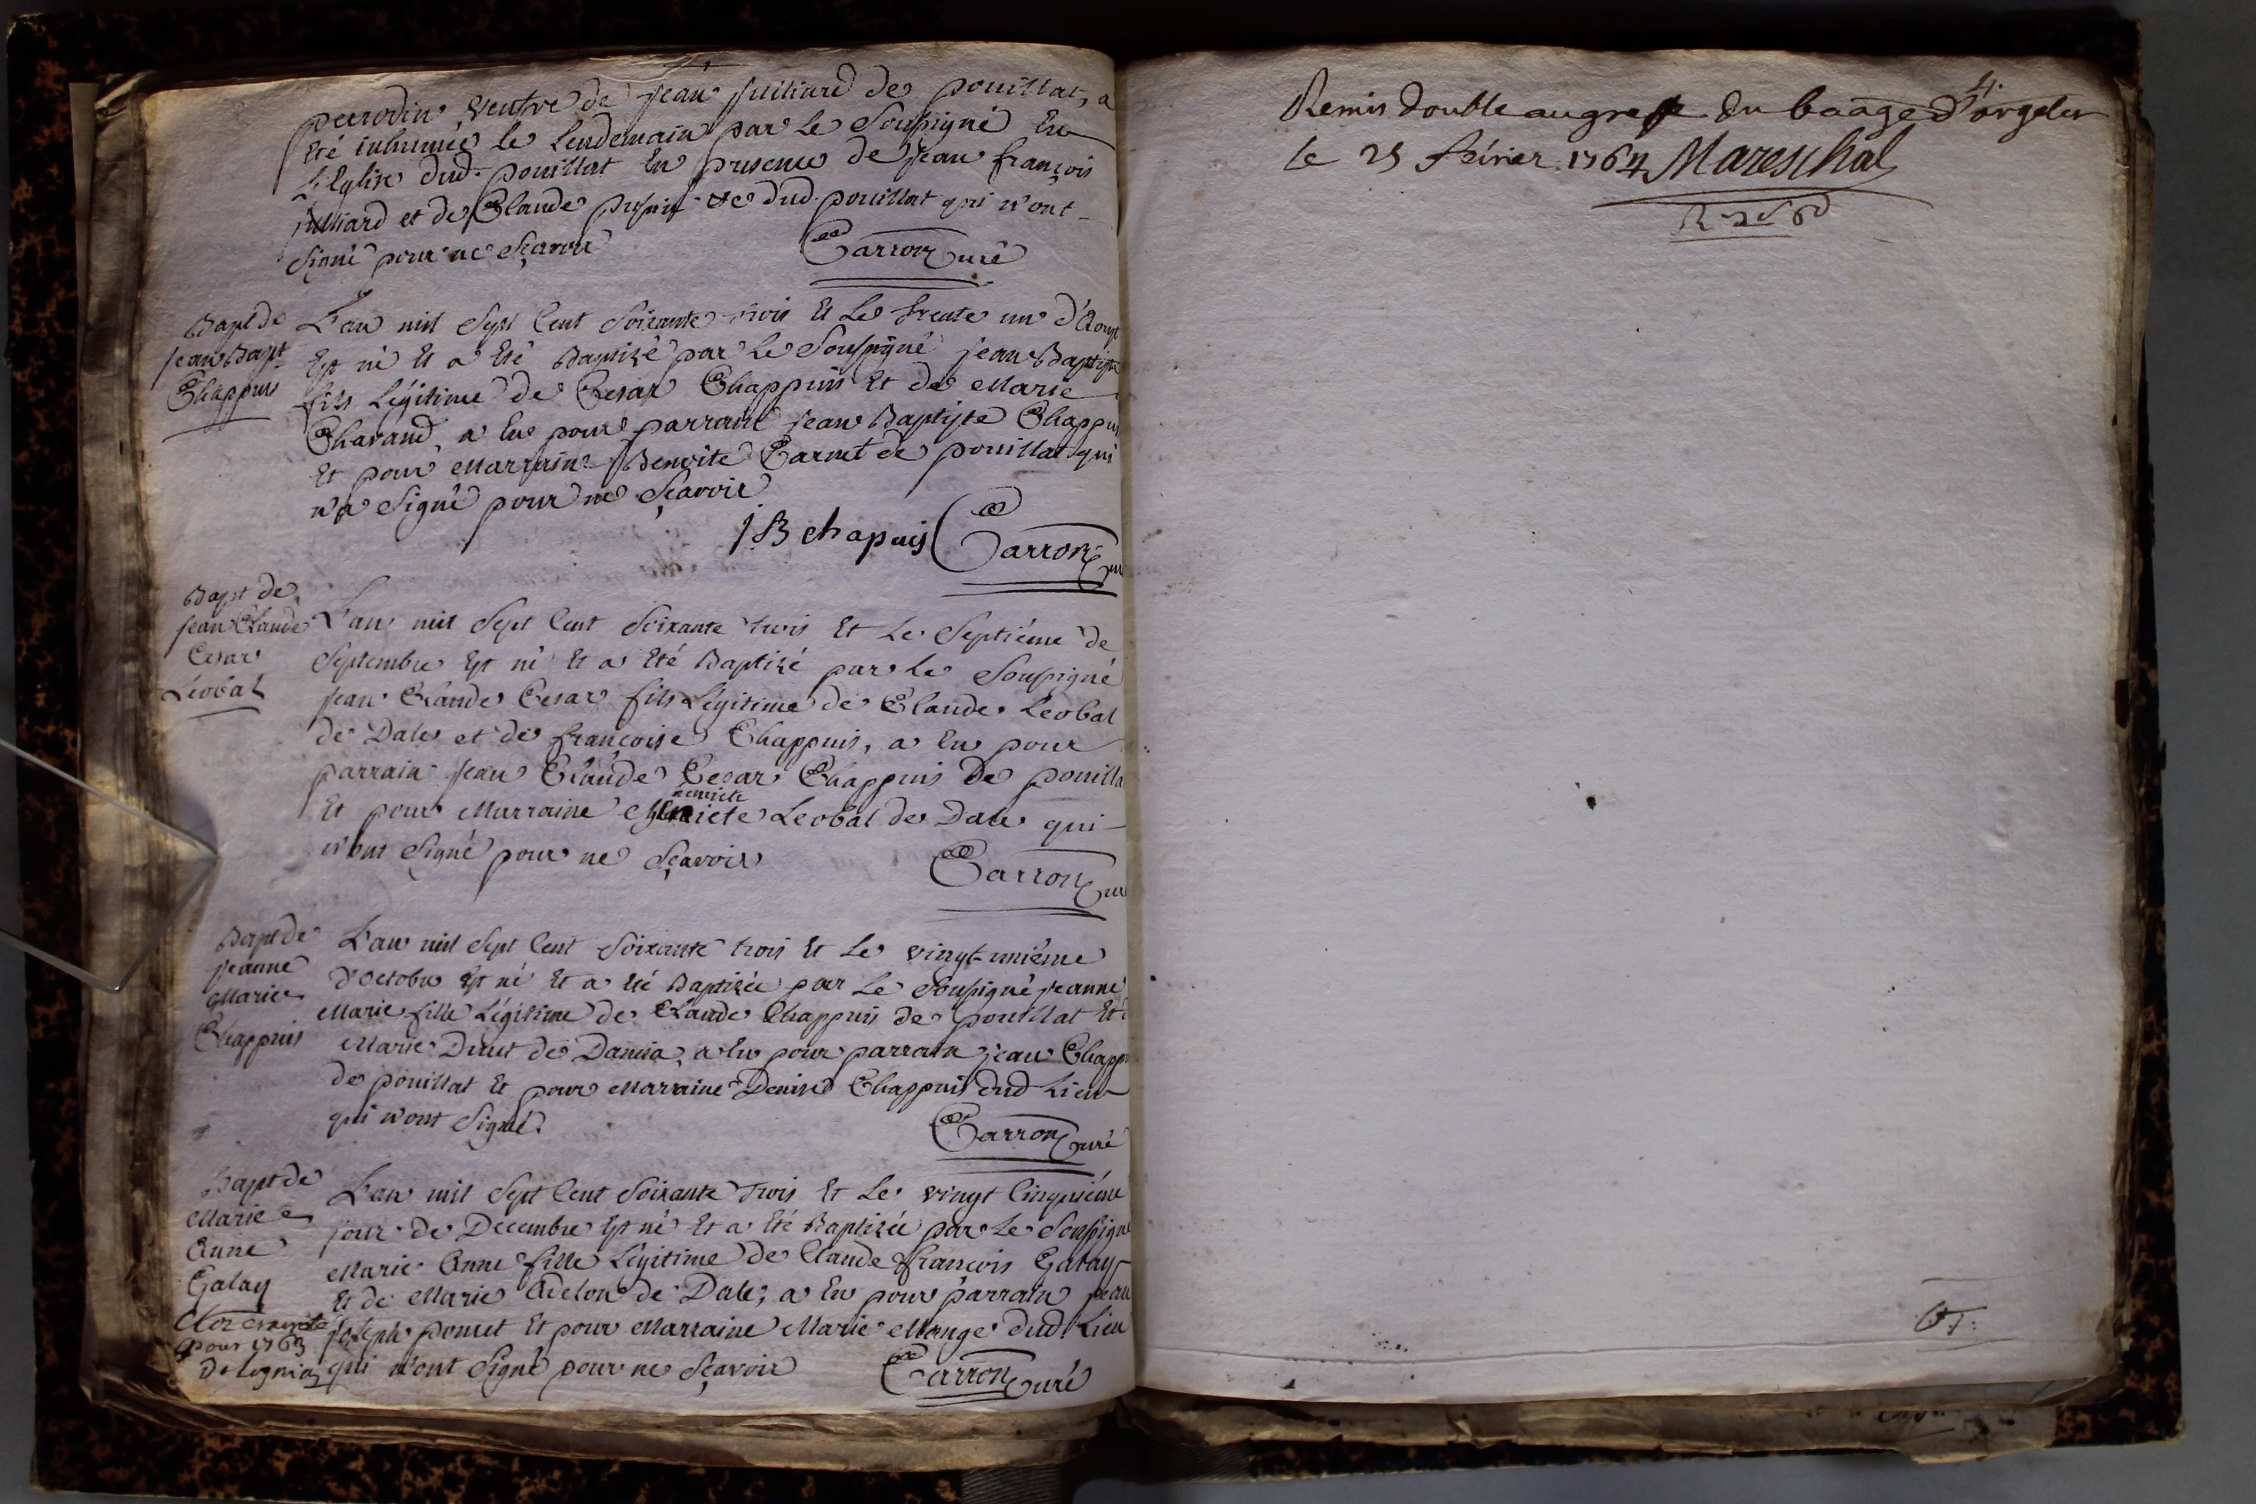 perrodin veufve de jean juilliard de pouillat, a
été inhumée le lendemain par le Soussigné En
L'Eglise dud. pouillat En presence de jean françois
juilliard et de Claude dud. pouillat qui n'ont
Signé pour ne Sçavoir
Carron Curé
Bapt de
jean Bapt
Chappuis
L'an mil Sept Cent Soixante trois Et Le trente un d'Aoust
Est né Et a Eté Baptizé par Le Soussigné jean Baptiste
fils Légitime de Cesar Chappuis Et de Marie
Chavand, a Eu pour parrain jean Baptiste Chappuis
Et pour Marraine Benoite Carnet de pouillat qui
n'a Signé pour ne Sçavoir
J B chapuis Carron Curé
Bapt de
jean Claude
Cesar
Léobal
L'an mil Sept Cent Soixante trois Et Le Septiéme de
Septembre Est né Et a Eté Baptizé par Le Soussigné
jean Claude Cesar fils Légitime de Claude Leobal
de Dale et de françoise Chappuis, a Eu pour
parrain jean Claude Cesar Chappuis de pouilla
Et pour Marraine Leobal de Dale qui
n'ont Signé pour ne Sçavoir
Carron Cur
Bapt de
jeanne
Marie
Chappuis
L'an mil Sept Cent Soixante trois Et Le vingt-uniéme
d'octobre Est né Et a Eté Baptizée par Le Soussigné jeanne
Marie fille Légitime de Claude Chappuis de pouillat Et
Marie de Damia, a Eu pour parrain jean Chapp
de pouillat Et pour Marraine Denise Chappuis dud Lieu
qui n'ont Signé.
Carron Curé
Bapt de
Marie
Anne
Galay
L'an mil Sept Cent Soixante trois Et Le vingt Cinquiéme
jour de Decembre Est né Et a Eté Baptizée par Le Soussigné
Marie Anne fille Légitime de Claude françois Galay
Et de Marie Adelon de Dale; a Eu pour parrain jean
joseph pomet Et pour Marraine Marie Monge dud Lieu
qui n'ont Signé pour ne Sçavoir
Carron Curé
pour 1763
Remis double au greffe du baage d'orgelet
le 25 février 1764 Mareschal